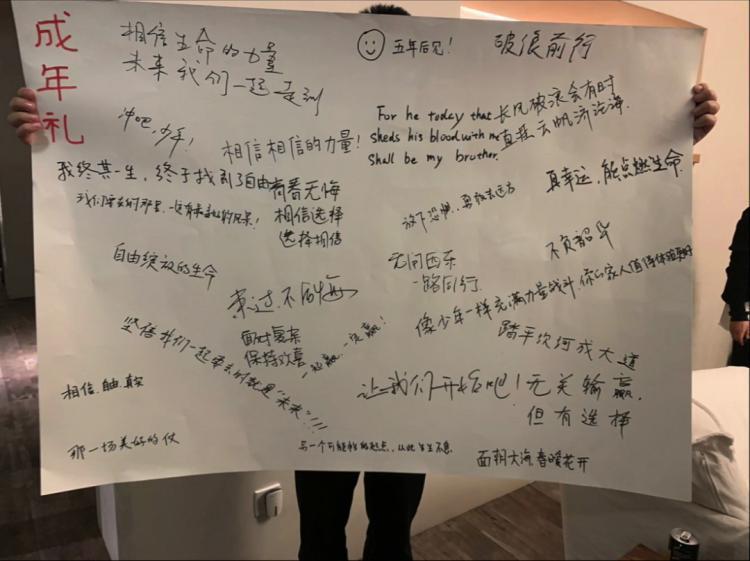 成年礼
相信生命的力量
未来我们一起走到
五年后见！
破浪前行
冲吧，少年！
相信相信的力量！
For he today that
sheds his blood with me
Shall be my brother.
长风破浪会有时
直挂云帆济沧海.
我终其一生，终于找到了自由
青春无悔
相信选择
选择相信
真幸运，能点燃生命.
放下恐惧，勇敢去远方
自由绽放的生命
来过，不后悔
无问西东
一路同行.
不负韶华
面对复杂
保持欢喜
一起赢，一定赢！
像少年一样充满力量战斗，你的家人值得体验更好
踏平坎坷成大道
坚信我们一起要去的就是“未来”!!!
相信.自由.真实
让我们开始吧！
无关输赢，
但有选择
那一场美好的仗
另一个可能性的起点，从此生生不息
面朝大海，春暖花开